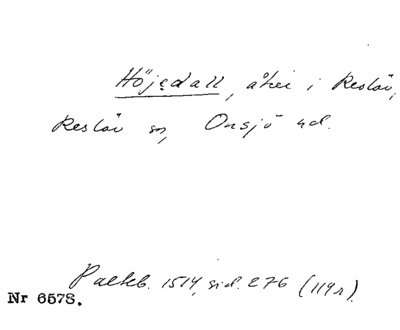 Höjedall, åker i Reslöv,
Reslöv sn, Onsjö hd.
Palteb. 1514, sid. 276 (119r).
Nr 6578.